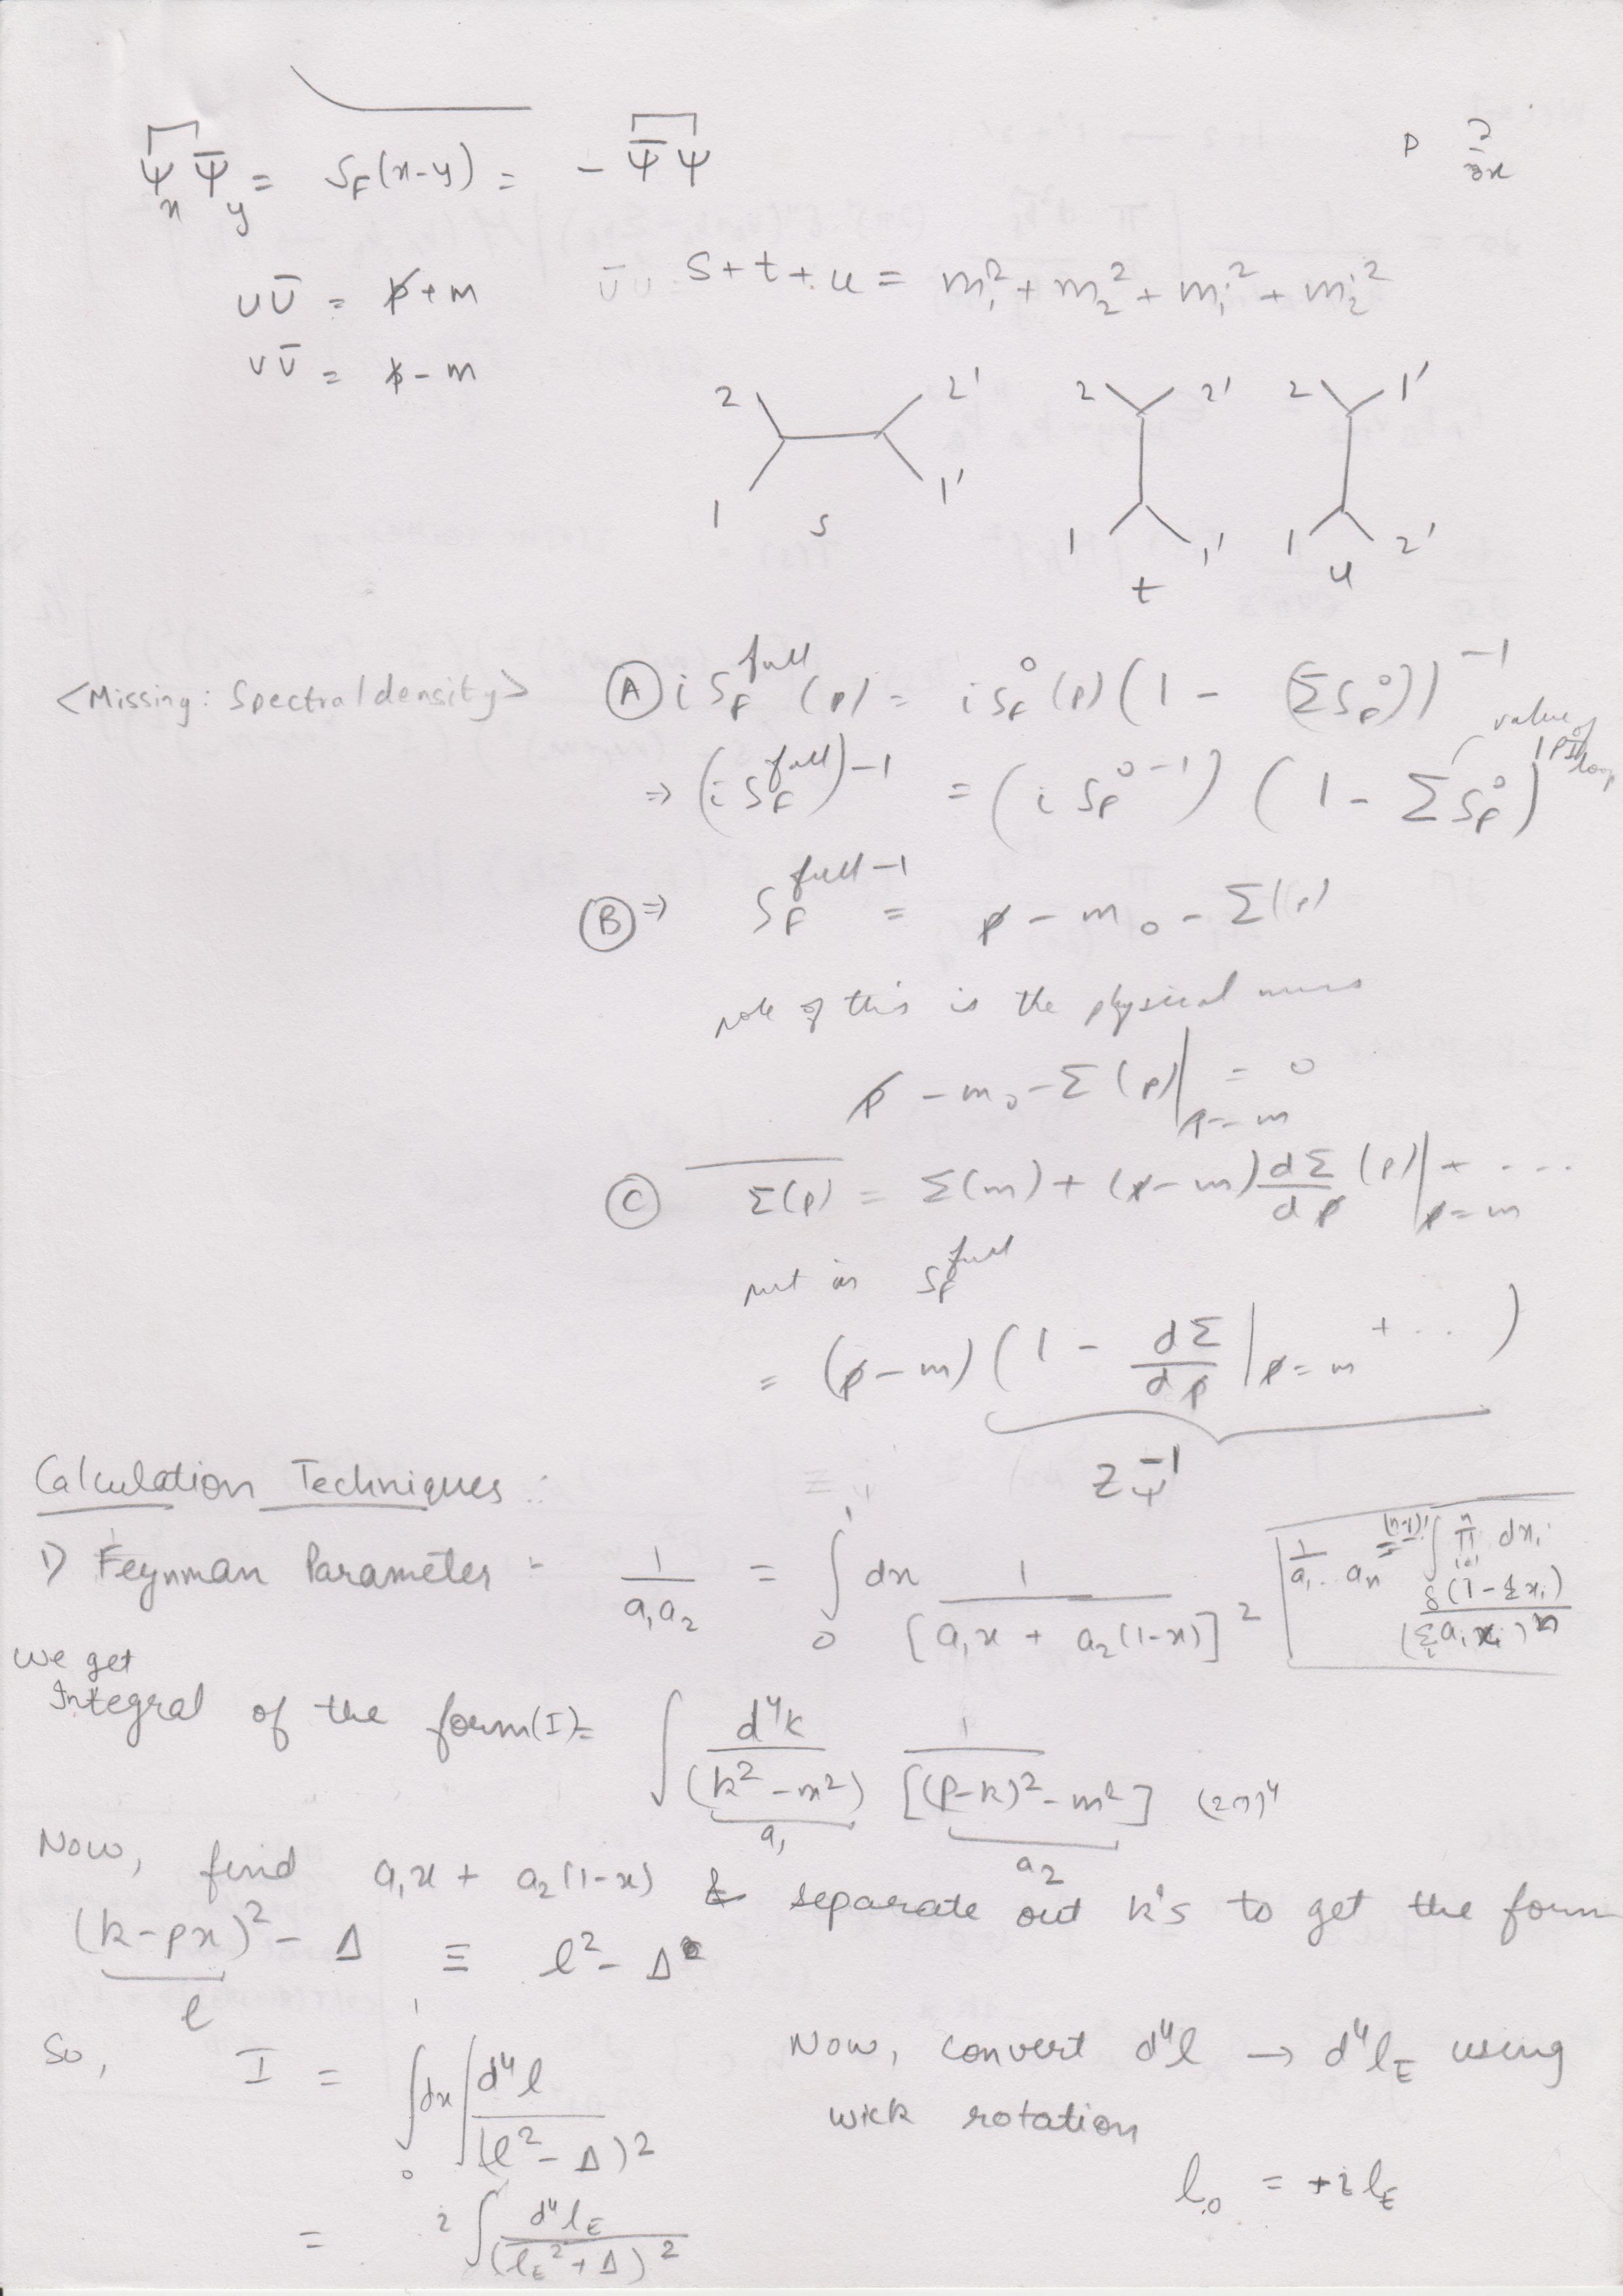 ψ_x ψ̄_y = S_F(x-y) = - ψ̄ ψ
p ∂/∂x
u ū = p̸ + m
s + t + u = m₁² + m₂² + m₁'² + m₂'²
v v̄ = p̸ - m
2 2' 2 2' 2 1'
1 1' 1 1' 1 2'
s t u
<Missing: Spectral density>
(A) i S_F^full (p) = i S_F^0 (p) (1 - (Σ S_F^0))^-1
value of 1PI loop
⇒ (i S_F^full)^-1 = (i S_F^0 -1) (1 - Σ S_F^0)
(B) ⇒ S_F^full -1 = p̸ - m₀ - Σ(p)
pole of this is the physical mass
p̸ - m₀ - Σ(p)|_p̸=m = 0
(C) Σ(p) = Σ(m) + (p̸-m) dΣ/dp̸ (p)|_p̸=m + ....
put in S_F^full
= (p̸-m) (1 - dΣ/dp̸ |_p̸=m + ...)
Z_ψ^-1
Calculation Techniques :
1) Feynman Parameter - 1/(a₁a₂) = ∫₀¹ dx 1/[a₁x + a₂(1-x)]²
1/(a₁..aₙ) = (n-1)! ∫ ∏_{i=1}^n dx_i δ(1-Σx_i)/(Σ a_i x_i)^n
We get
Integral of the form(I) = ∫ d⁴k/(k²-m²) 1/[(p-k)²-m²] (2π)⁴
a₁ a₂
Now, find a₁x + a₂(1-x) & separate out k's to get the form
(k-px)² - Δ ≡ l² - Δ
l
So, I = ∫₀¹ dx ∫ d⁴l/(l²-Δ)²
Now, convert d⁴l → d⁴l_E using
wick rotation
l₀ = +i l_E
= i ∫ d⁴l_E/(l_E²+Δ)²